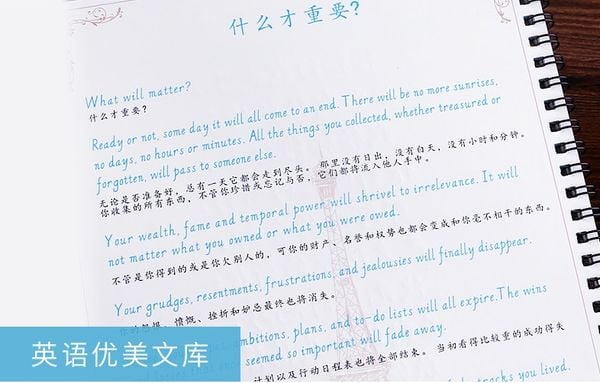 什么才重要?
What will matter?
什么才重要?
Ready or not, some day it will all come to an end. There will be no more sunrises,
no days, no hours or minutes. All the things you collected, whether treasured or
forgotten, will pass to someone else.
无论是否准备好,总有一天它都会走到尽头。那里没有日出,没有白天,没有小时和分钟。
你收集的所有东西,不管你珍惜或忘记与否,它们都将流入他人手中。
Your wealth, fame and temporal power will shrivel to irrelevance. It will
not matter what you owned or what you were owed.
不管是你得到的或是你欠别人的,可你的财产、名誉和权势也都会变成和你毫不相干的东西。
Your grudges, resentments, frustrations, and jealousies will finally disappear.
你的怨恨、愤慨、挫折和妒忌最终也将消失。
ambitions, plans, and to-do lists will all expire. The wins
seemed so important will fade away.
计划以及行动日程表也将全部结束。当初看得比较重的成功得失
tracks you lived.
英语优美文库